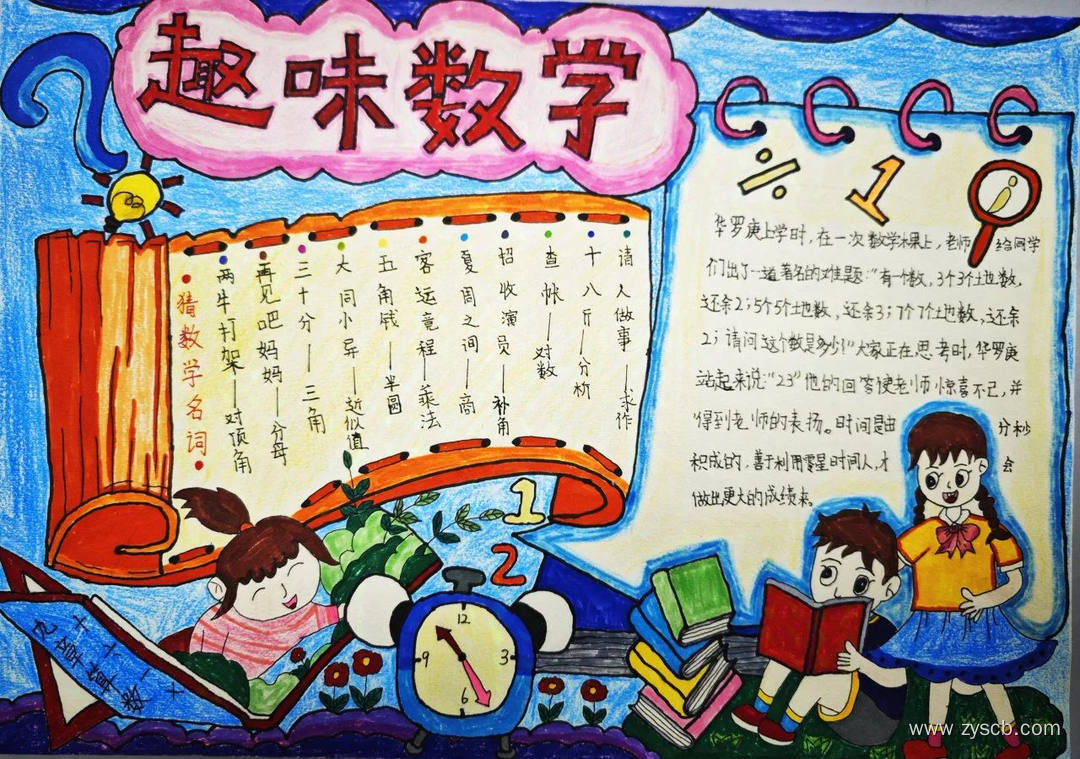 趣味数学
猜数学名词
两牛打架——对顶角
再见吧妈妈——分母
三十分——三角
大同小异——近似值
五角钱——半圆
客运竟程——乘法
夏周之间——商
招收演员——补角
查帐——对数
十八斤——分析
请人做事——求作
÷ 1
华罗庚上学时,在一次数学课上,老师给同学
们出了一道著名的难题:“有一个数,3个3个地数,
还余2;5个5个地数,还余3;7个7个地数,还余
2;请问这个数是多少?”大家正在思考时,华罗庚
站起来说:“23”他的回答使老师惊喜不已,并
得到老师的表扬。时间是由 分秒
积成的,善于利用零星时间人,才 会
做出更大的成绩来。
1
2
12
9 3
6
www.zyscb.com